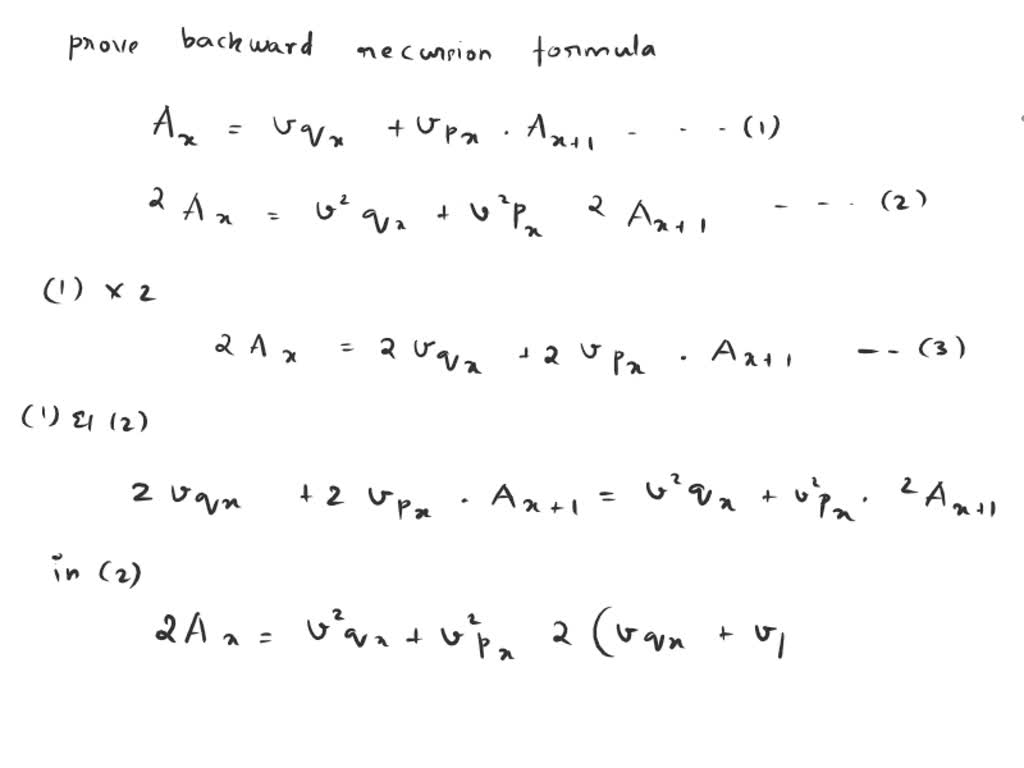 prove backward recursion formula
Aₓ = v qₓ + v pₓ . Aₓ₊₁ - - - (1)
² Aₓ = v² qₓ + v² pₓ ² Aₓ₊₁ - - . (2)
(1) × 2
2 Aₓ = 2 v qₓ + 2 v pₓ . Aₓ₊₁ -- (3)
(1) & (2)
2 v qₓ + 2 v pₓ . Aₓ₊₁ = v² qₓ + v² pₓ . ² Aₓ₊₁
in (2)
2Aₓ = v² qₓ + v² pₓ 2 (v qₓ + v